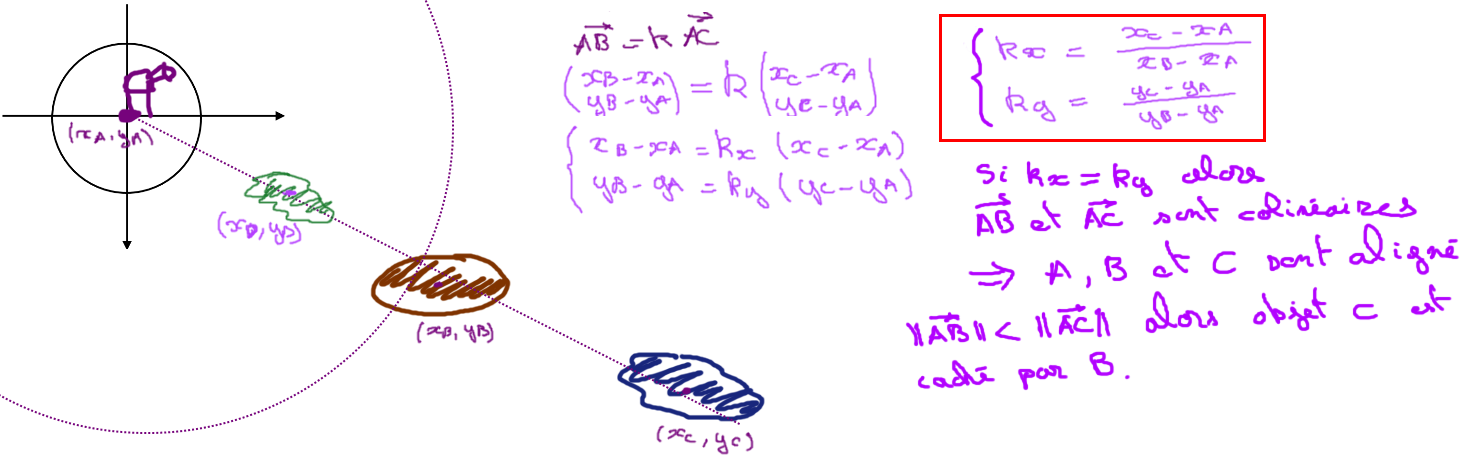 (xA, yA)
(xB, yB)
(xB, yB)
(xC, yC)
AB→ = k AC→
(xB - xA
yB - yA) = k (xC - xA
yC - yA)
{ xB - xA = kx (xC - xA)
yB - yA = ky (yC - yA)
{ kx = (xC - xA) / (xB - xA)
ky = (yC - yA) / (yB - yA)
Si kx = ky alors
AB→ et AC→ sont colinéaires
⇒ A, B et C sont aligné
||AB→|| < ||AC→|| alors objet C est
caché par B.